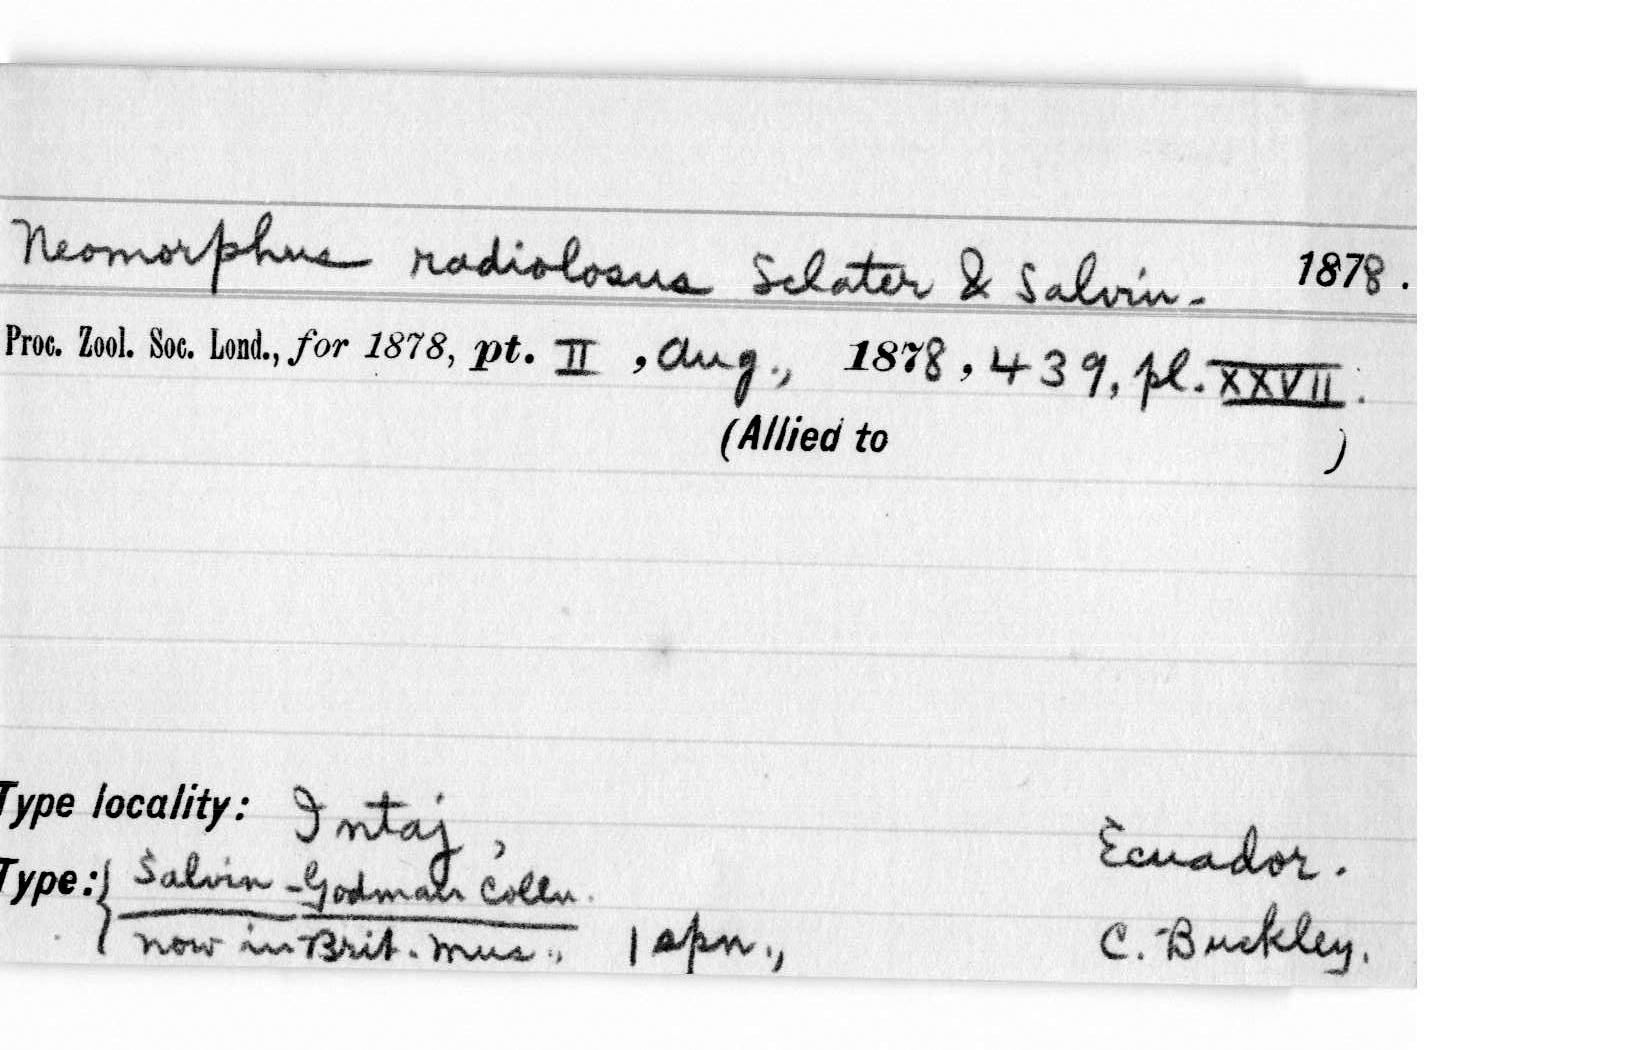 Neomorphus radiolosus Sclater & Salvin. 1878.
Proc. Zool. Soc. Lond., for 1878, pt. II, Aug., 1878, 439, pl. XXVII.
(Allied to )
Type locality: Intaj, Ecuador.
Type: { Salvin-Godman Colln.
now in Brit. Mus., 1 spn., C. Buckley.